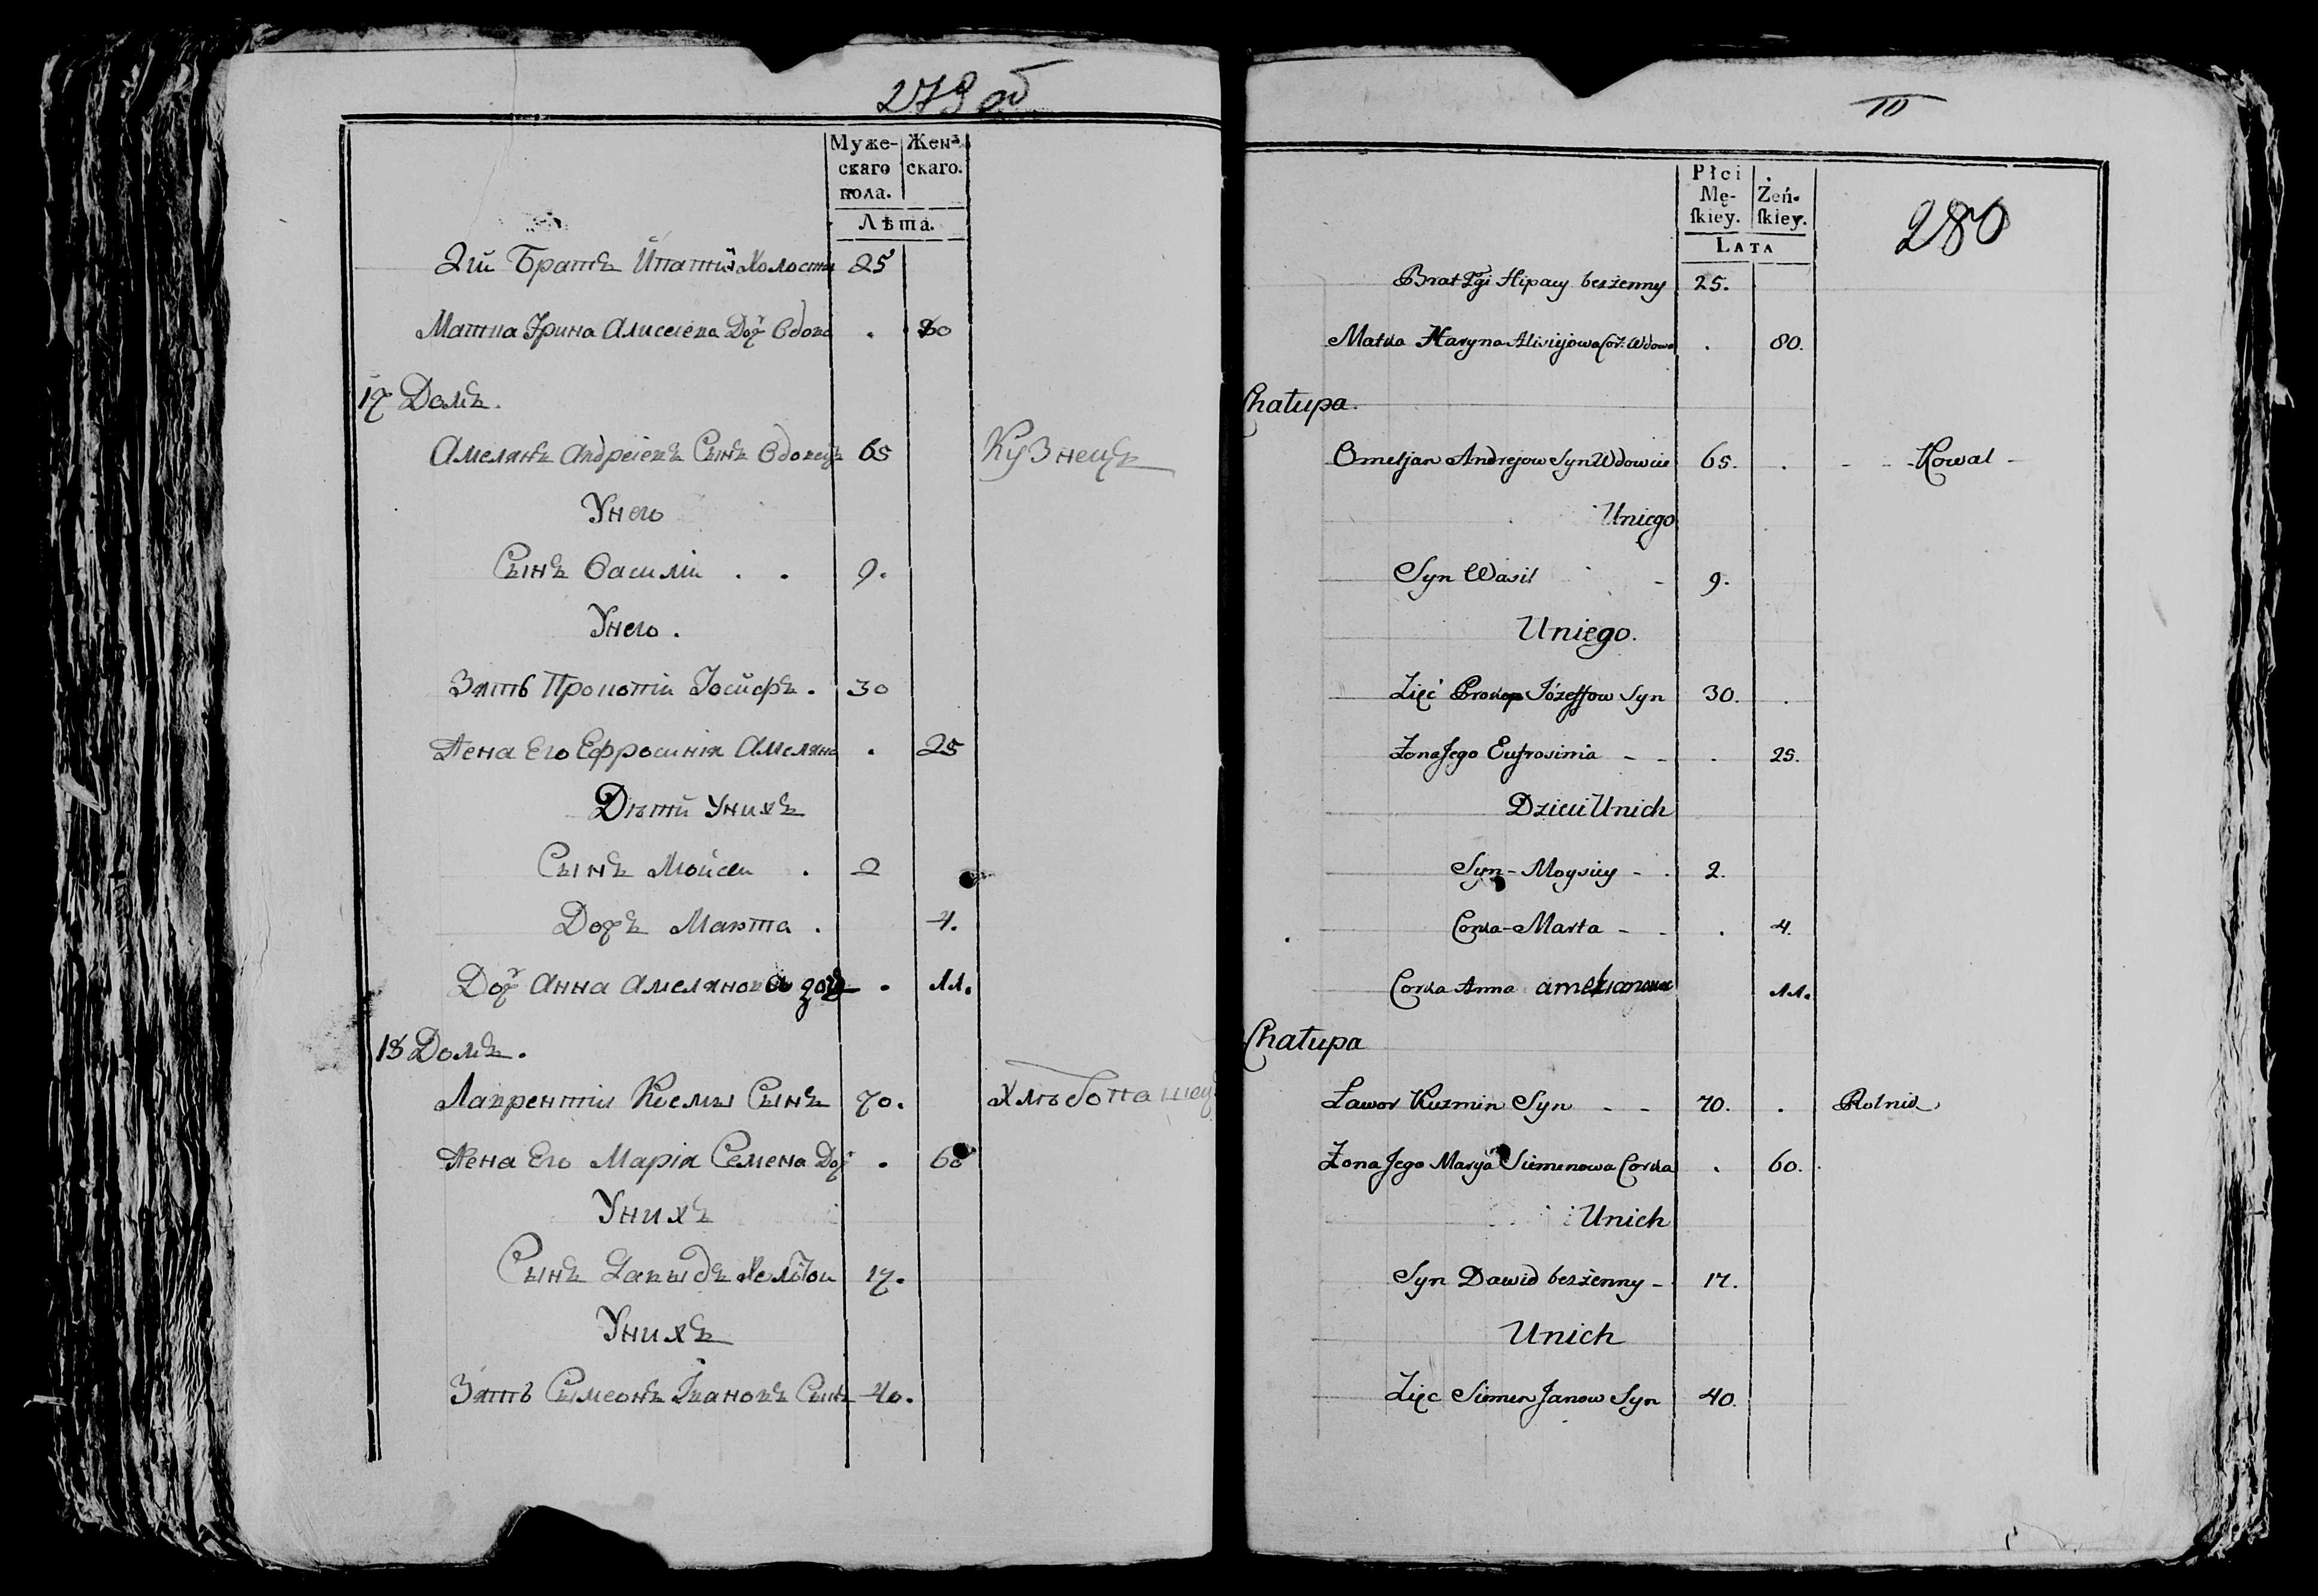 279 об
Муже-
скаго
пола.
Жен-
скаго.
Лѣта.
2й Братъ Ипатій Холостъ 25
Матка Ірина Алисеева Доч Вдова . 80
17 Домъ.
Амелянъ Андреіевъ Сынъ Вдовецъ 65 Кузнецъ
Унего
Сынъ Василій . . 9.
Унего .
Зять Прокопій Іосифъ . 30
Жена Его Ефросинія Амеляна . 25
Дѣти Унихъ
Сынъ Мойсей . 2
Дочъ Марта . 4.
Доч Анна Амелянова доч . 11.
18 Домъ.
Лаврентій Космы Сынъ 70. Хлѣбопашец
Жена Его Марія Семена Доч . 60
Унихъ
Сынъ Давыдъ Холостой 17.
Унихъ
Зять Сымеонъ Івановъ Сынъ 40.
10
Płci
Mę-
ſkiey.
Żeń-
ſkiey.
LATA
280
Brat 2gi Hipacy bezżenny 25.
Matka Haryna Alisiejowa Cor: Wdowa . 80.
Chałupa.
Omeljan Andrejow Syn Wdowiec 65. . - - Kowal -
Uniego
Syn Wasil - 9.
Uniego.
Zięć Prokop Józeffow Syn 30. .
Żona Jego Eufrosinia - - . 25.
Dzieci Unich
Syn - Moysiey - . 2.
Corka - Marta - - . 4.
Corka Anna amelianowa 11.
Chałupa
Ławor Kuzmin Syn - - 70. . Rolnik
Żona Jego Marya Siemenowa Corka . 60.
Unich
Syn Dawid bezżenny - 17.
Unich
Zięc Siemen Janow Syn 40.